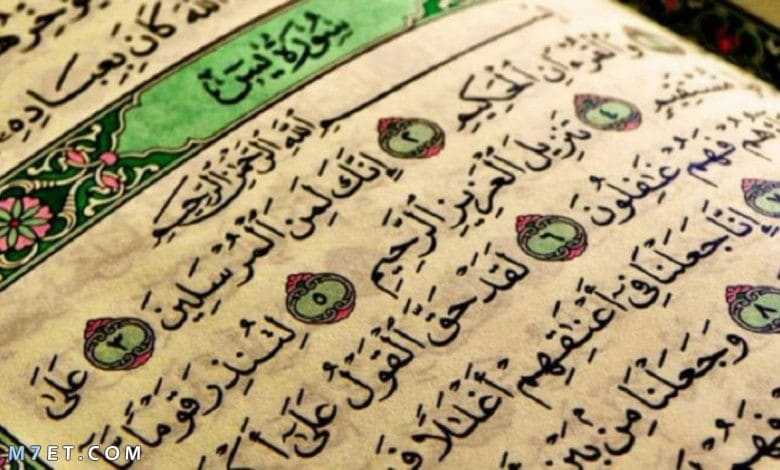 ٱللَّهَ كَانَ بِعِبَادِهِۦ
سُورَةُ يسٓ
ٱللَّهِ ٱلرَّحْمَٰنِ ٱلرَّحِيمِ
وَٱلْقُرْءَانِ ٱلْحَكِيمِ ٢ إِنَّكَ لَمِنَ ٱلْمُرْسَلِينَ ٣ عَلَىٰ
مُّسْتَقِيمٍ ٤ تَنزِيلَ ٱلْعَزِيزِ ٱلرَّحِيمِ ٥ لِتُنذِرَ قَوْمًا مَّآ
فَهُمْ غَٰفِلُونَ ٦ لَقَدْ حَقَّ ٱلْقَوْلُ عَلَىٰٓ
إِنَّا جَعَلْنَا فِىٓ أَعْنَٰقِهِمْ أَغْلَٰلًا
٨ وَجَعَلْنَا مِنۢ بَيْنِ
M7ET.COM